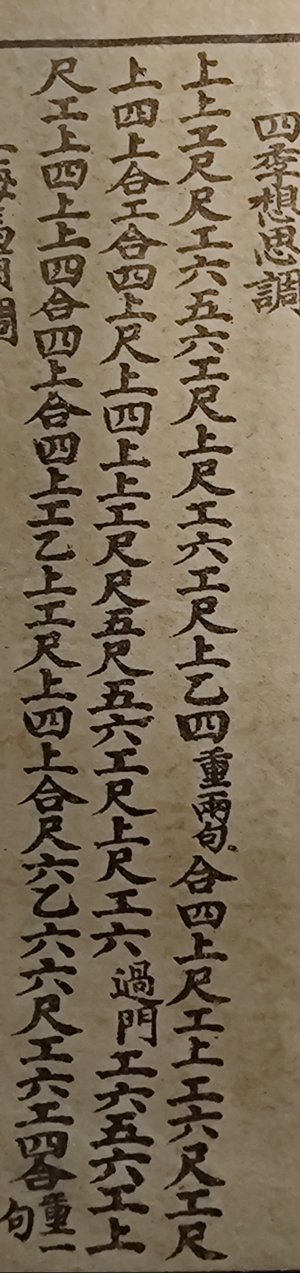 四季想思調
上上工尺尺工六五六工尺上尺工六工尺上乙四重兩句合四上尺工上工六尺工尺
上四上合工合四上尺上四上上工尺尺五尺五六工尺上尺工六過門工六五六工上
尺工上四上上四合四上合四上工乙上工尺上四上合尺六乙六六尺工六工四合重一句